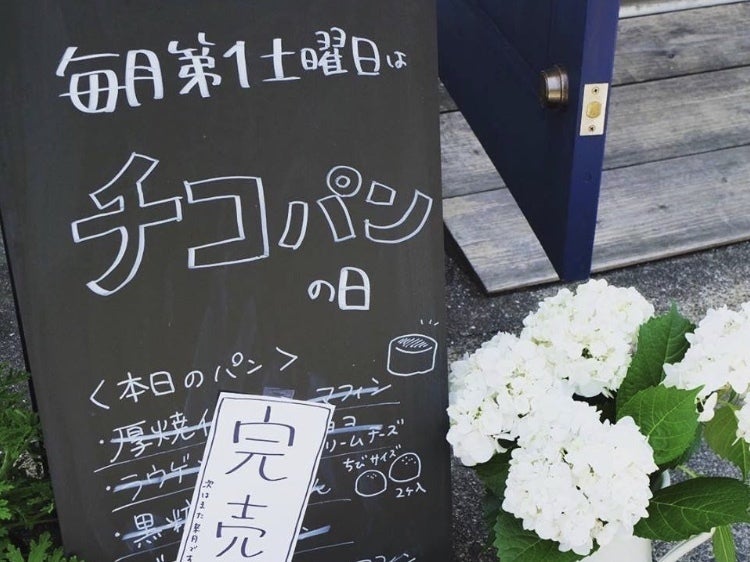 毎月第1土曜日は
チコパン
の日
<本日のパン>
マフィン
・厚焼
リームチーズ
・ラウゲ
ちびサイズ
2ケ入
・黒
完売
次はまた来月です